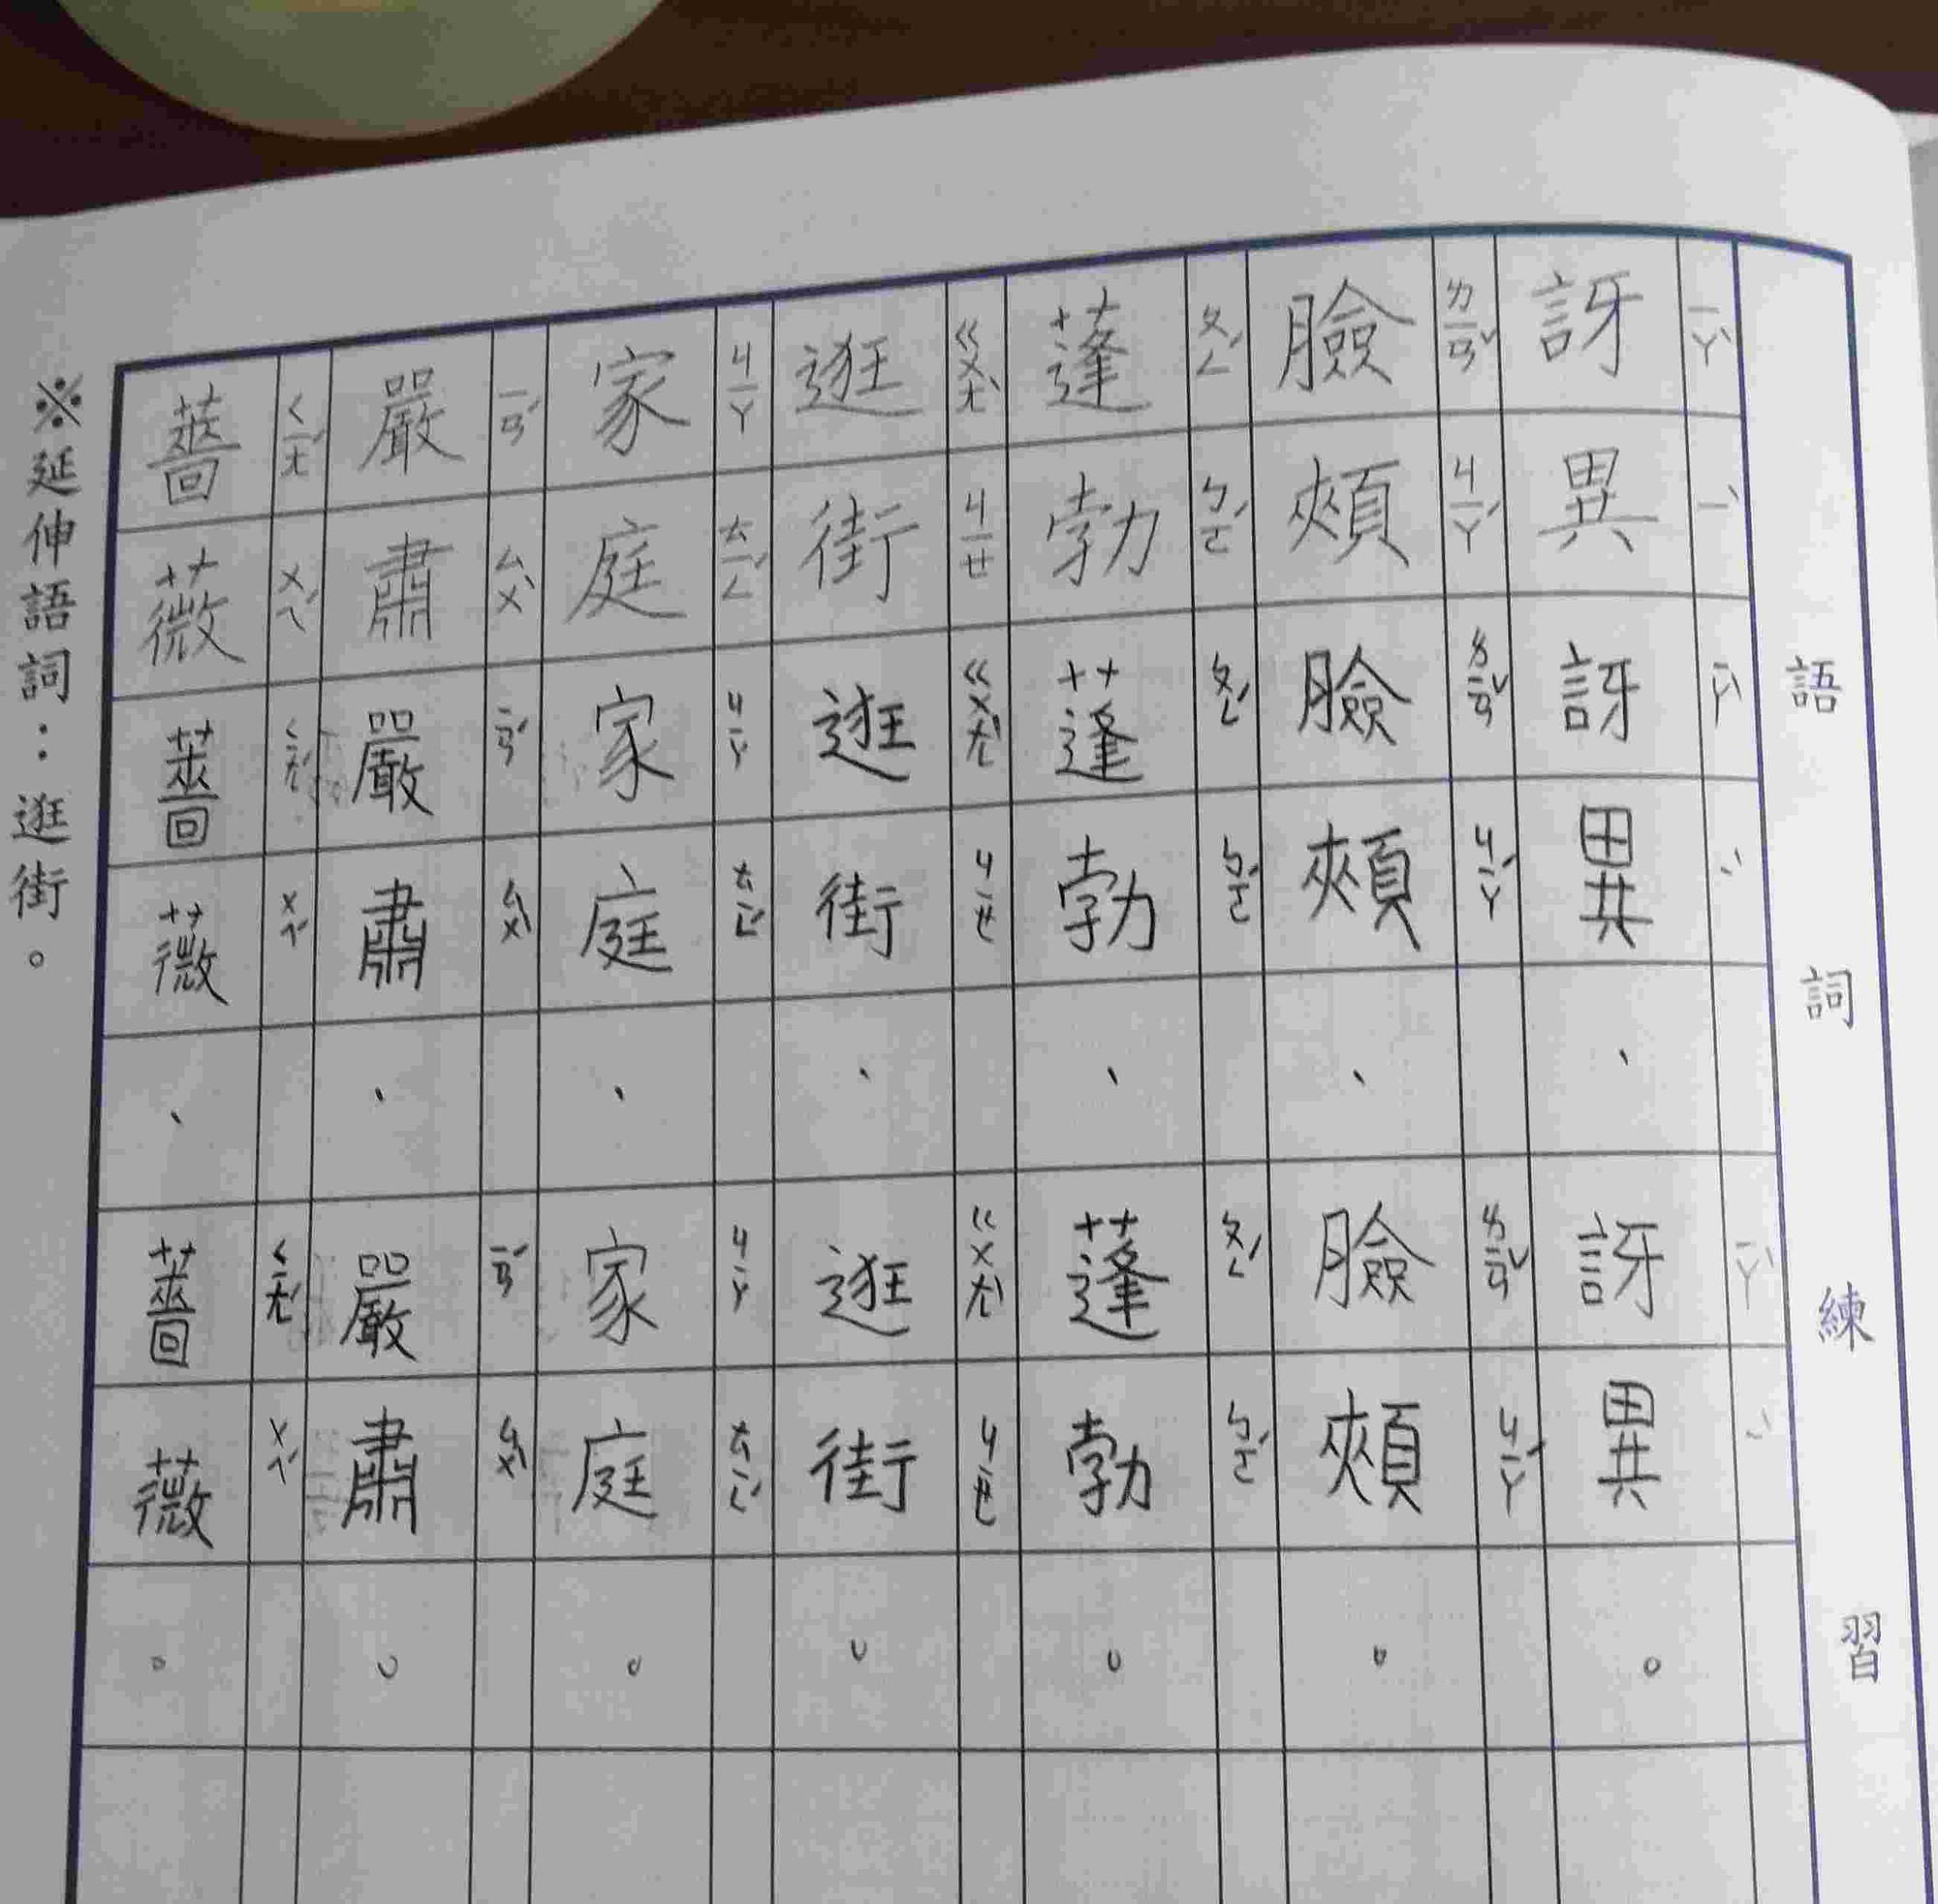 語詞練習
訝異訝異、訝異。
ㄧㄚˋ ㄧˋ ㄧㄚˋ ㄧˋ ㄧㄚˋ ㄧˋ
臉頰臉頰、臉頰。
ㄌㄧㄢˇ ㄐㄧㄚˊ ㄌㄧㄢˇ ㄐㄧㄚˊ ㄌㄧㄢˇ ㄐㄧㄚˊ
蓬勃蓬勃、蓬勃。
ㄆㄥˊ ㄅㄛˊ ㄆㄥˊ ㄅㄛˊ ㄆㄥˊ ㄅㄛˊ
逛街逛街、逛街。
ㄍㄨㄤˋ ㄐㄧㄝ ㄍㄨㄤˋ ㄐㄧㄝ ㄍㄨㄤˋ ㄐㄧㄝ
家庭家庭、家庭。
ㄐㄧㄚ ㄊㄧㄥˊ ㄐㄧㄚ ㄊㄧㄥˊ ㄐㄧㄚ ㄊㄧㄥˊ
嚴肅嚴肅、嚴肅。
ㄧㄢˊ ㄙㄨˋ ㄧㄢˊ ㄙㄨˋ ㄧㄢˊ ㄙㄨˋ
薔薇薔薇、薔薇。
ㄑㄧㄤˊ ㄨㄟˊ ㄑㄧㄤˊ ㄨㄟˊ ㄑㄧㄤˊ ㄨㄟˊ
※延伸語詞：逛街。